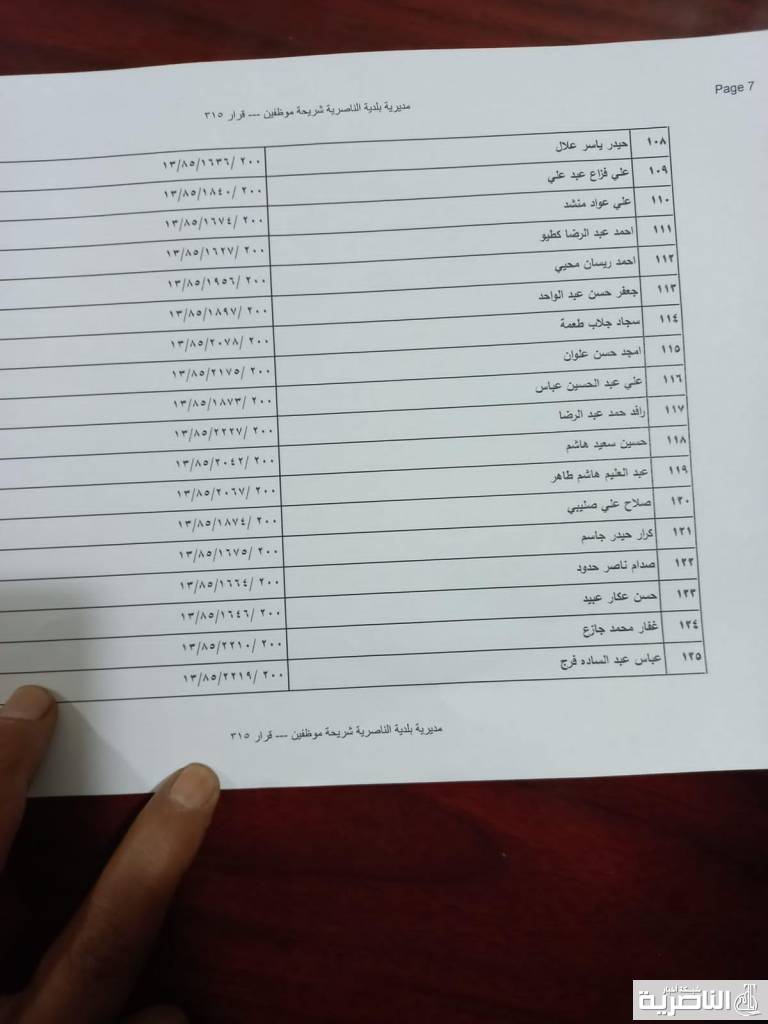 Page 7
مديرية بلدية الناصرية شريحة موظفين --- قرار ٣١٥
١٠٨ حيدر ياسر علال ١٣/٨٥/١٦٣٦/ ٢٠٠
١٠٩ علي فزاع عبد علي ١٣/٨٥/١٨٤٠/ ٢٠٠
١١٠ علي عواد منشد ١٣/٨٥/١٦٧٤/ ٢٠٠
١١١ احمد عبد الرضا كطيو ١٣/٨٥/١٦٢٧/ ٢٠٠
١١٢ احمد ريسان محيي ١٣/٨٥/١٩٥٦/ ٢٠٠
١١٣ جعفر حسن عبد الواحد ١٣/٨٥/١٨٩٧/ ٢٠٠
١١٤ سجاد جلاب طعمة ١٣/٨٥/٢٠٧٨/ ٢٠٠
١١٥ امجد حسن علوان ١٣/٨٥/٢١٧٥/ ٢٠٠
١١٦ علي عبد الحسين عباس ١٣/٨٥/١٨٧٣/ ٢٠٠
١١٧ رافد حمد عبد الرضا ١٣/٨٥/٢٢٢٧/ ٢٠٠
١١٨ حسين سعيد هاشم ١٣/٨٥/٢٠٤٢/ ٢٠٠
١١٩ عبد العليم هاشم طاهر ١٣/٨٥/٢٠٦٧/ ٢٠٠
١٢٠ صلاح علي صليبي ١٣/٨٥/١٨٧٤/ ٢٠٠
١٢١ كرار حيدر جاسم ١٣/٨٥/١٦٧٥/ ٢٠٠
١٢٢ صدام ناصر حدود ١٣/٨٥/١٦٦٤/ ٢٠٠
١٢٣ حسن عكار عبيد ١٣/٨٥/١٦٤٦/ ٢٠٠
١٢٤ غفار محمد جازع ١٣/٨٥/٢٢١٠/ ٢٠٠
١٢٥ عباس عبد الساده فرج ١٣/٨٥/٢٢١٩/ ٢٠٠
مديرية بلدية الناصرية شريحة موظفين --- قرار ٣١٥
شبكة أخبار
الناصرية